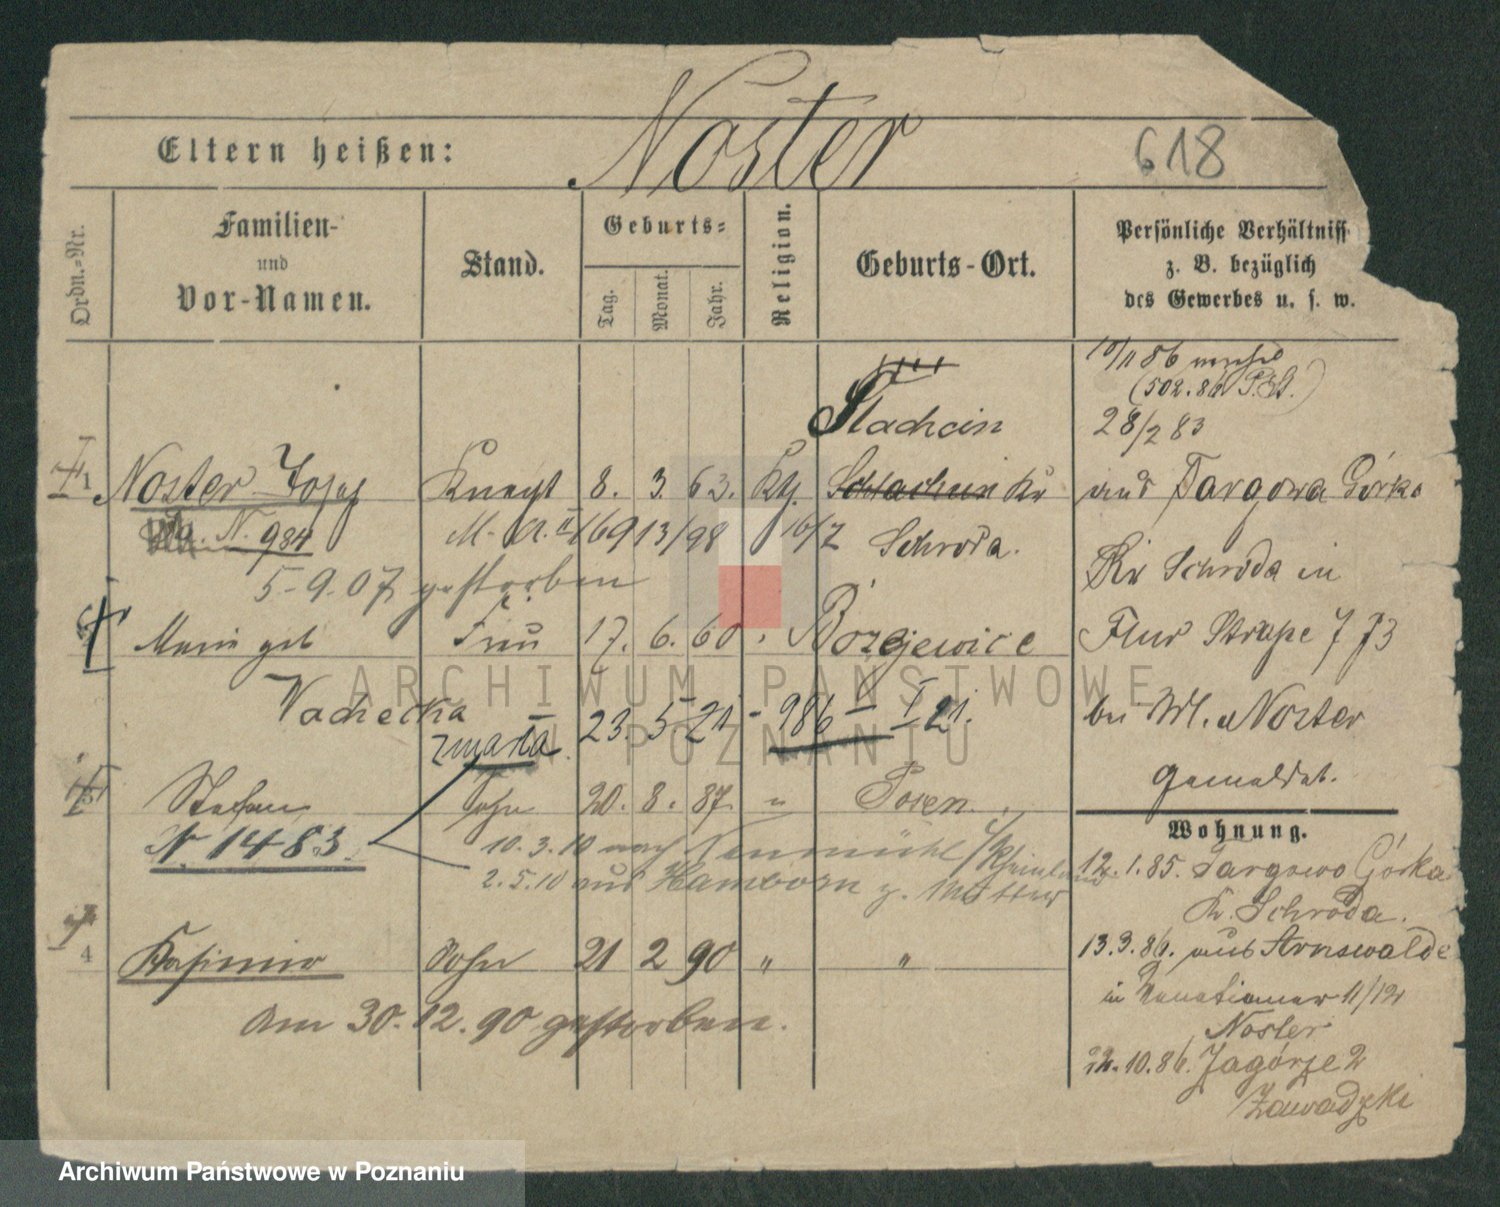 Noster
618
Eltern heißen:
Ordn.-Nr.
Familien-
und
Vor-Namen.
Stand.
Geburts-
Tag.
Monat.
Jahr.
Religion.
Geburts-Ort.
Persönliche Verhältniss
z. B. bezüglich
des Gewerbes u. s. w.
10/1 86
(502.86
Stachcin
28/2 83
1 Noster Josef Knecht 8. 3. 63. Kth. Schlachcin Kr
Schroda.
aus Targowa Górka
N. 984
M. A. II 169 13/98 16/7
Kr Schroda in
5-9.07 gestorben
Marie geb Frau 17. 6. 60 Bozejewice
Flur Straße 7 J3
Vachecka
zmarła 23. 5 21 - 986 II I 21.
bei Wl. Noster
gemeldet.
Stefan Sohn 20. 8. 87 " Posen.
Wohnung.
N. 1483
10.3.10 nach Neumühl / Rheinland
2.5.10 aus Hamborn z. Mutter
12.1.85. Targowo Górka
Kr. Schroda.
4 Kasimir Sohn 21 2 90 " "
13.3.86. aus Arnswalde
in 11/12
Noster
am 30.12.90 gestorben.
22.10.86. Zagórze 2
Zawadzki
ARCHIWUM PAŃSTWOWE
W POZNANIU
Archiwum Państwowe w Poznaniu